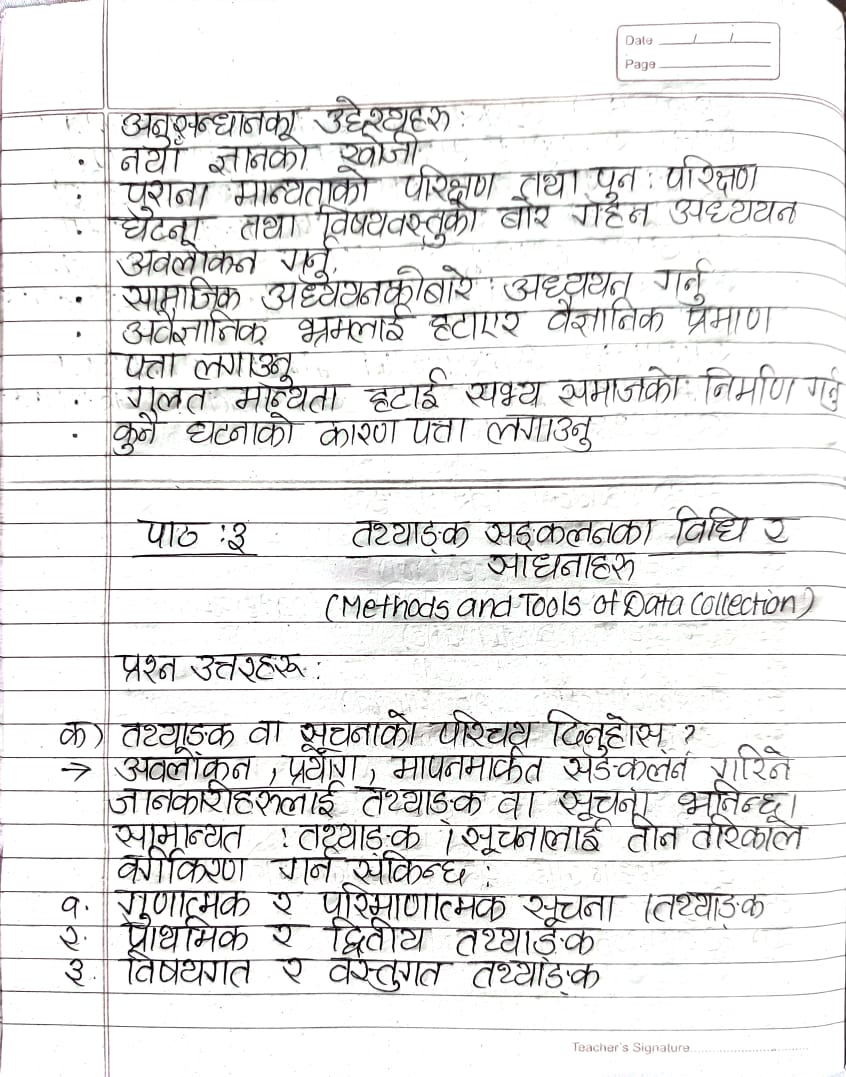 Date / /
Page
अनुसन्धानका उद्देश्यहरू :
• नयाँ ज्ञानको खोजी
• पुराना मान्यताको परिक्षण तथा पुन : परिक्षण
• घटना तथा विषयवस्तुको बारे गहन अध्ययन
अवलोकन गर्नु.
• सामाजिक अध्ययनकोबारे अध्ययन गर्नु
• अवैज्ञानिक भ्रमलाई हटाएर वैज्ञानिक प्रमाण
पत्ता लगाउनु
• गलत मान्यता हटाई सभ्य समाजको निर्माण गर्नु
• कुनै घटनाको कारण पत्ता लगाउनु
पाठ :३ तथ्याङ्क सङ्कलनका विधि र
साधनाहरू
(Methods and Tools of Data Collection)
प्रश्न उत्तरहरू :
क) तथ्याङ्क वा सूचनाको परिचय दिनुहोस् ?
→ अवलोकन , प्रयोग , मापनमार्फत सङ्कलन गरिने
जानकारीहरूलाई तथ्याङ्क वा सूचना भनिन्छ।
सामान्यत : तथ्याङ्क / सूचनालाई तीन तरिकाले
वर्गीकरण गर्न सकिन्छ :
१. गुणात्मक र परिमाणात्मक सूचना / तथ्याङ्क
२. प्राथमिक र द्वितीय तथ्याङ्क
३. विषयगत र वस्तुगत तथ्याङ्क
Teacher's Signature